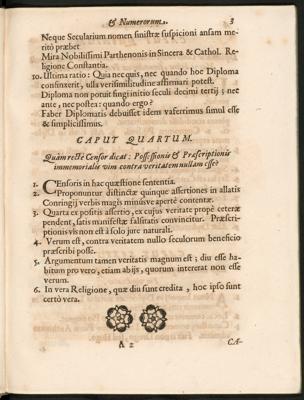 & Numerorum. 3
Neque Secularium nomen sinistræ suspicioni ansam me-
ritò præbet
Mira Nobilissimi Parthenonis in Sincera & Cathol. Re-
ligione Constantia.
10. Ultima ratio: Quia nec quis, nec quando hoc Diploma
confinxerit, ulla verisimilitudine affirmari potest.
Diploma non potuit fingi initio seculi decimi tertij; nec
ante, nec postea: quando ergo?
Faber Diplomatis debuisset idem vaferrimus simul esse
& simplicissimus.
CAPUT QUARTUM.
Quàm rectè Censor dicat: Possessionis & Præscriptionis
immemorialis vim contra veritatem nullam esse?
1. Censoris in hac quæstione sententia.
2. Proponuntur distinctæ quinque assertiones in allatis
Conringij verbis magis minusve apertè contentæ.
3. Quarta ex positis assertio, ex cujus veritate propè cæteræ
pendent, satis manifestæ falsitatis convincitur. Præscri-
ptionis vis non est à solo jure naturali.
4. Verum est, contra veritatem nullo seculorum beneficio
præscribi posse.
5. Argumentum tamen veritatis magnum est; diu esse ha-
bitum pro vero, etiam abijs, quorum intererat non esse
verum.
6. In vera Religione, quæ diu sunt credita, hoc ipso sunt
certò vera.
A 2 CA-